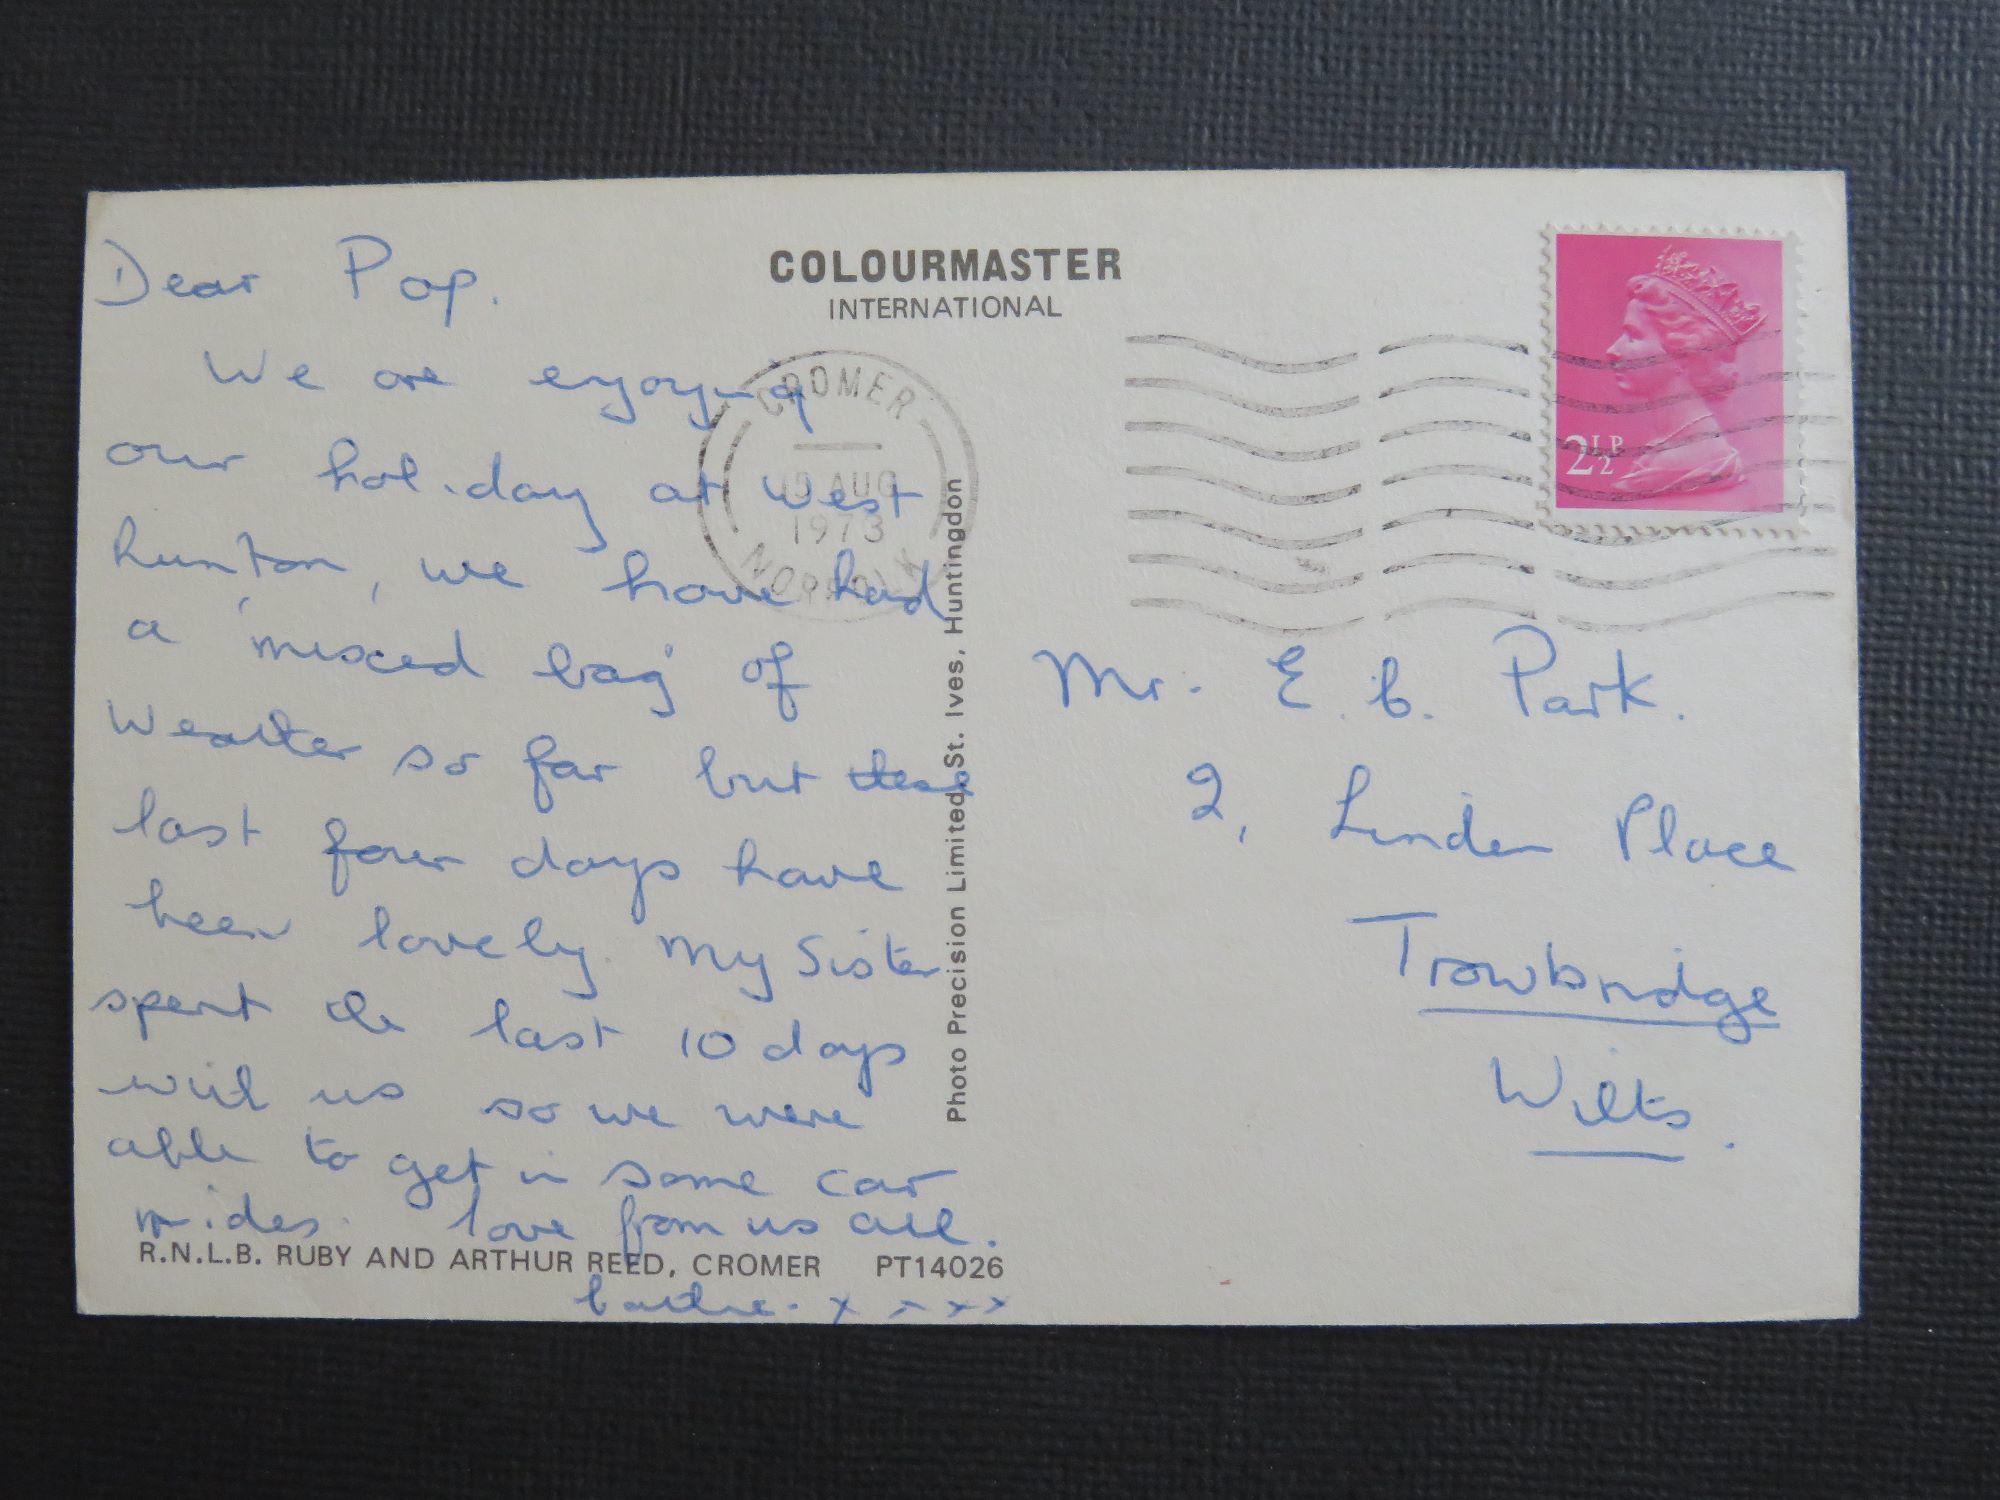 Dear Pop.
We are enjoying
our holiday at West
Runton, we have had
a 'mixed bag' of
Weather so far but these
last four days have
been lovely. My Sister
spent the last 10 days
with us so we were
able to get in some car
rides. love from us all.
x x x x
COLOURMASTER
INTERNATIONAL
CROMER
AUG
1973
NORFOLK
Photo Precision Limited, St. Ives, Huntingdon
R.N.L.B. RUBY AND ARTHUR REED, CROMER PT14026
2½P
Mr. E. B. Park.
2, Linden Place
Trowbridge
Wilts.